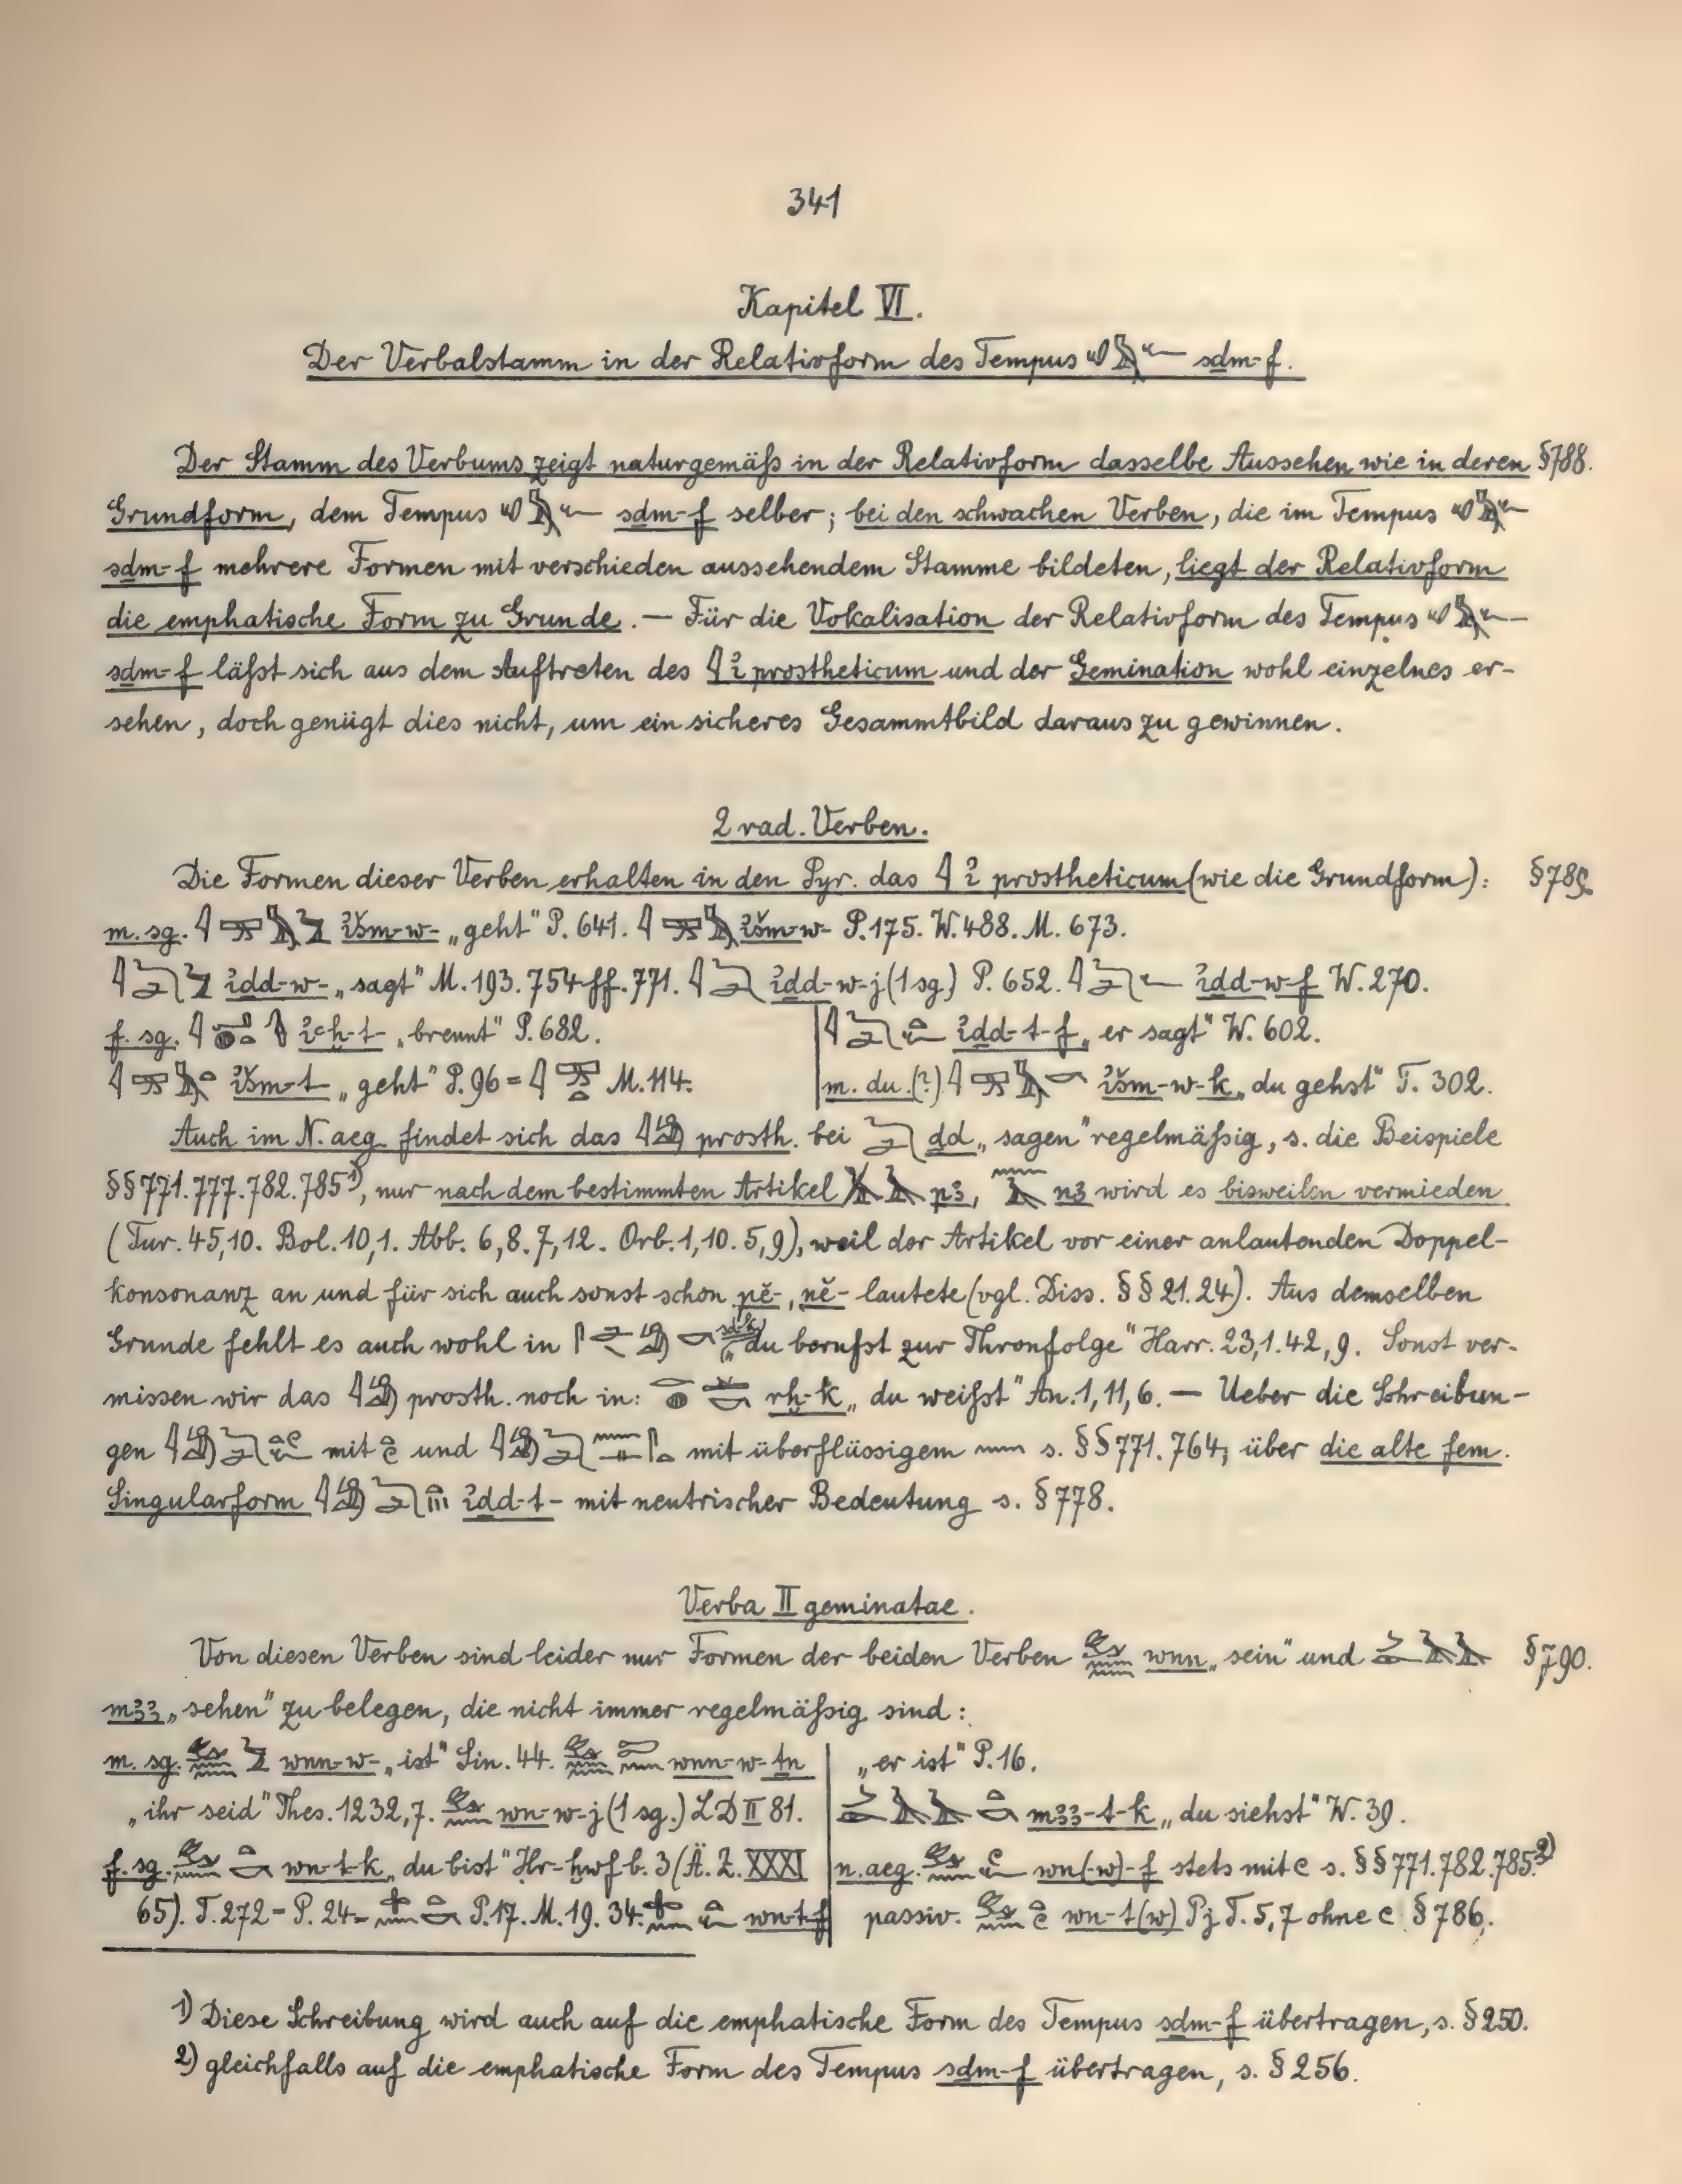 341
Kapitel VI.
Der Verbalstamm in der Relativform des Tempus sḏm-f.
Der Stamm des Verbums zeigt naturgemäß in der Relativform dasselbe Aussehen wie in deren §788.
Grundform, dem Tempus sḏm-f selber; bei den schwachen Verben, die im Tempus
sḏm-f mehrere Formen mit verschieden aussehendem Stamme bildeten, liegt der Relativform
die emphatische Form zu Grunde. — Für die Vokalisation der Relativform des Tempus
sḏm-f läßt sich aus dem Auftreten des 𓇋 ỉ prostheticum und der Gemination wohl einzelnes er-
sehen, doch genügt dies nicht, um ein sicheres Gesammtbild daraus zu gewinnen.
2 rad. Verben.
Die Formen dieser Verben erhalten in den Pyr. das 𓇋 ỉ prostheticum (wie die Grundform): §789.
m. sg. ỉšm-w- „geht“ P. 641. ỉšm-w- P. 175. W. 488. M. 673.
ỉḏd-w- „sagt“ M. 193. 754 ff. 771. ỉḏd-w-j (1 sg.) P. 652. ỉḏd-w-f W. 270.
f. sg. „brennt“ P. 682.
ỉšm-t „geht“ P. 96 = M. 114.
ỉḏd-t-f „er sagt“ W. 602.
m. du. (?) ỉšm-w-k „du gehst“ T. 302.
Auch im N. aeg. findet sich das prosth. bei ḏd „sagen“ regelmäßig, s. die Beispiele
§§ 771. 777. 782. 785¹⁾, nur nach dem bestimmten Artikel pꜣ, nꜣ wird es bisweilen vermieden
(Tur. 45,10. Bol. 10,1. Abb. 6,8. 7,12. Orb. 1,10. 5,9), weil der Artikel vor einer anlautenden Doppel-
konsonanz an und für sich auch sonst schon pĕ-, nĕ- lautete (vgl. Diss. §§ 21. 24). Aus demselben
Grunde fehlt es auch wohl in „du berufst zur Thronfolge“ Harr. 23,1. 42,9. Sonst ver-
missen wir das prosth. noch in: rḫ-k „du weißt“ An. 1,11,6. — Ueber die Schreibun-
gen mit und mit überflüssigem 𓈖 s. §§ 771. 764; über die alte fem.
Singularform ỉḏd-t- mit neutrischer Bedeutung s. § 778.
Verba II geminatae.
Von diesen Verben sind leider nur Formen der beiden Verben wnn „sein“ und §790.
mꜣꜣ „sehen“ zu belegen, die nicht immer regelmäßig sind:
m. sg. wnn-w- „ist“ Sin. 44. wnn-w-ṯn
„ihr seid“ Thes. 1232,7. wn-w-j (1 sg.) LD II 81.
f. sg. wn-t-k „du bist“ Ḥr-ḫwf b. 3 (Ä. Z. XXXI
65). T. 272 = P. 24 = P. 17. M. 19. 34. wn-t-f
„er ist“ P. 16.
mꜣꜣ-t-k „du siehst“ W. 39.
n. aeg. wn(-w)-f stets mit 𓏲 s. §§ 771. 782. 785.²⁾
passiv. wn-t(w) Pj T. 5,7 ohne 𓏲 § 786.
1) Diese Schreibung wird auch auf die emphatische Form des Tempus sḏm-f übertragen, s. § 250.
2) gleichfalls auf die emphatische Form des Tempus sḏm-f übertragen, s. § 256.